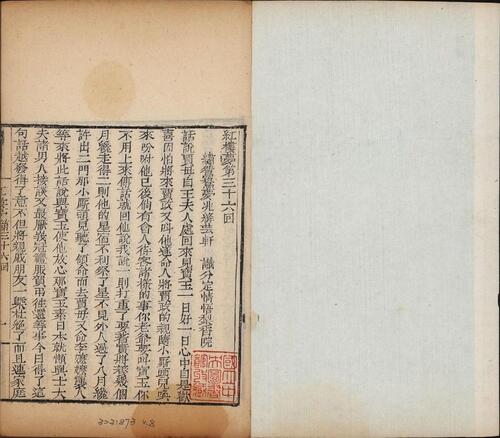 紅樓夢第三十六回
繡鴛鴦夢兆絳芸軒　識分定情悟梨香院
話說賈母自王夫人處回來見寶玉一日好一日心中自是歡
喜因怕將來賈政又叫他遂命人將賈政的親隨小廝頭兒喚
來吩咐他已後倘有會人待客諸樣的事你老爺要叫寶玉你
不用上來傳話就回他說我說一則打重了要著實將養幾個
月纔走得二則他的星宿不利祭了星不見外人過了八月纔
許出二門那小廝頭兒聽了領命而去賈母又命李嬤嬤襲人
等來將此話說與寶玉使他放心那寶玉素日本就懶與士大
夫諸男人接談又最厭峩冠禮服賀弔往還等事今日得了這
句話越發得了意不但將親戚朋友一槩杜絕了而且連家庭
紅樓夢第三十六回
一
3021873 v.8